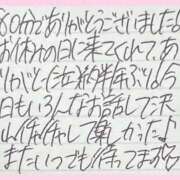 80分でありがとうございました!
お休みの日に来てくれて、あ
りがとう
今
日もいろんなお話して沢
山イチャイチャして楽しかった♪
またいつでも待ってまぁ〜す